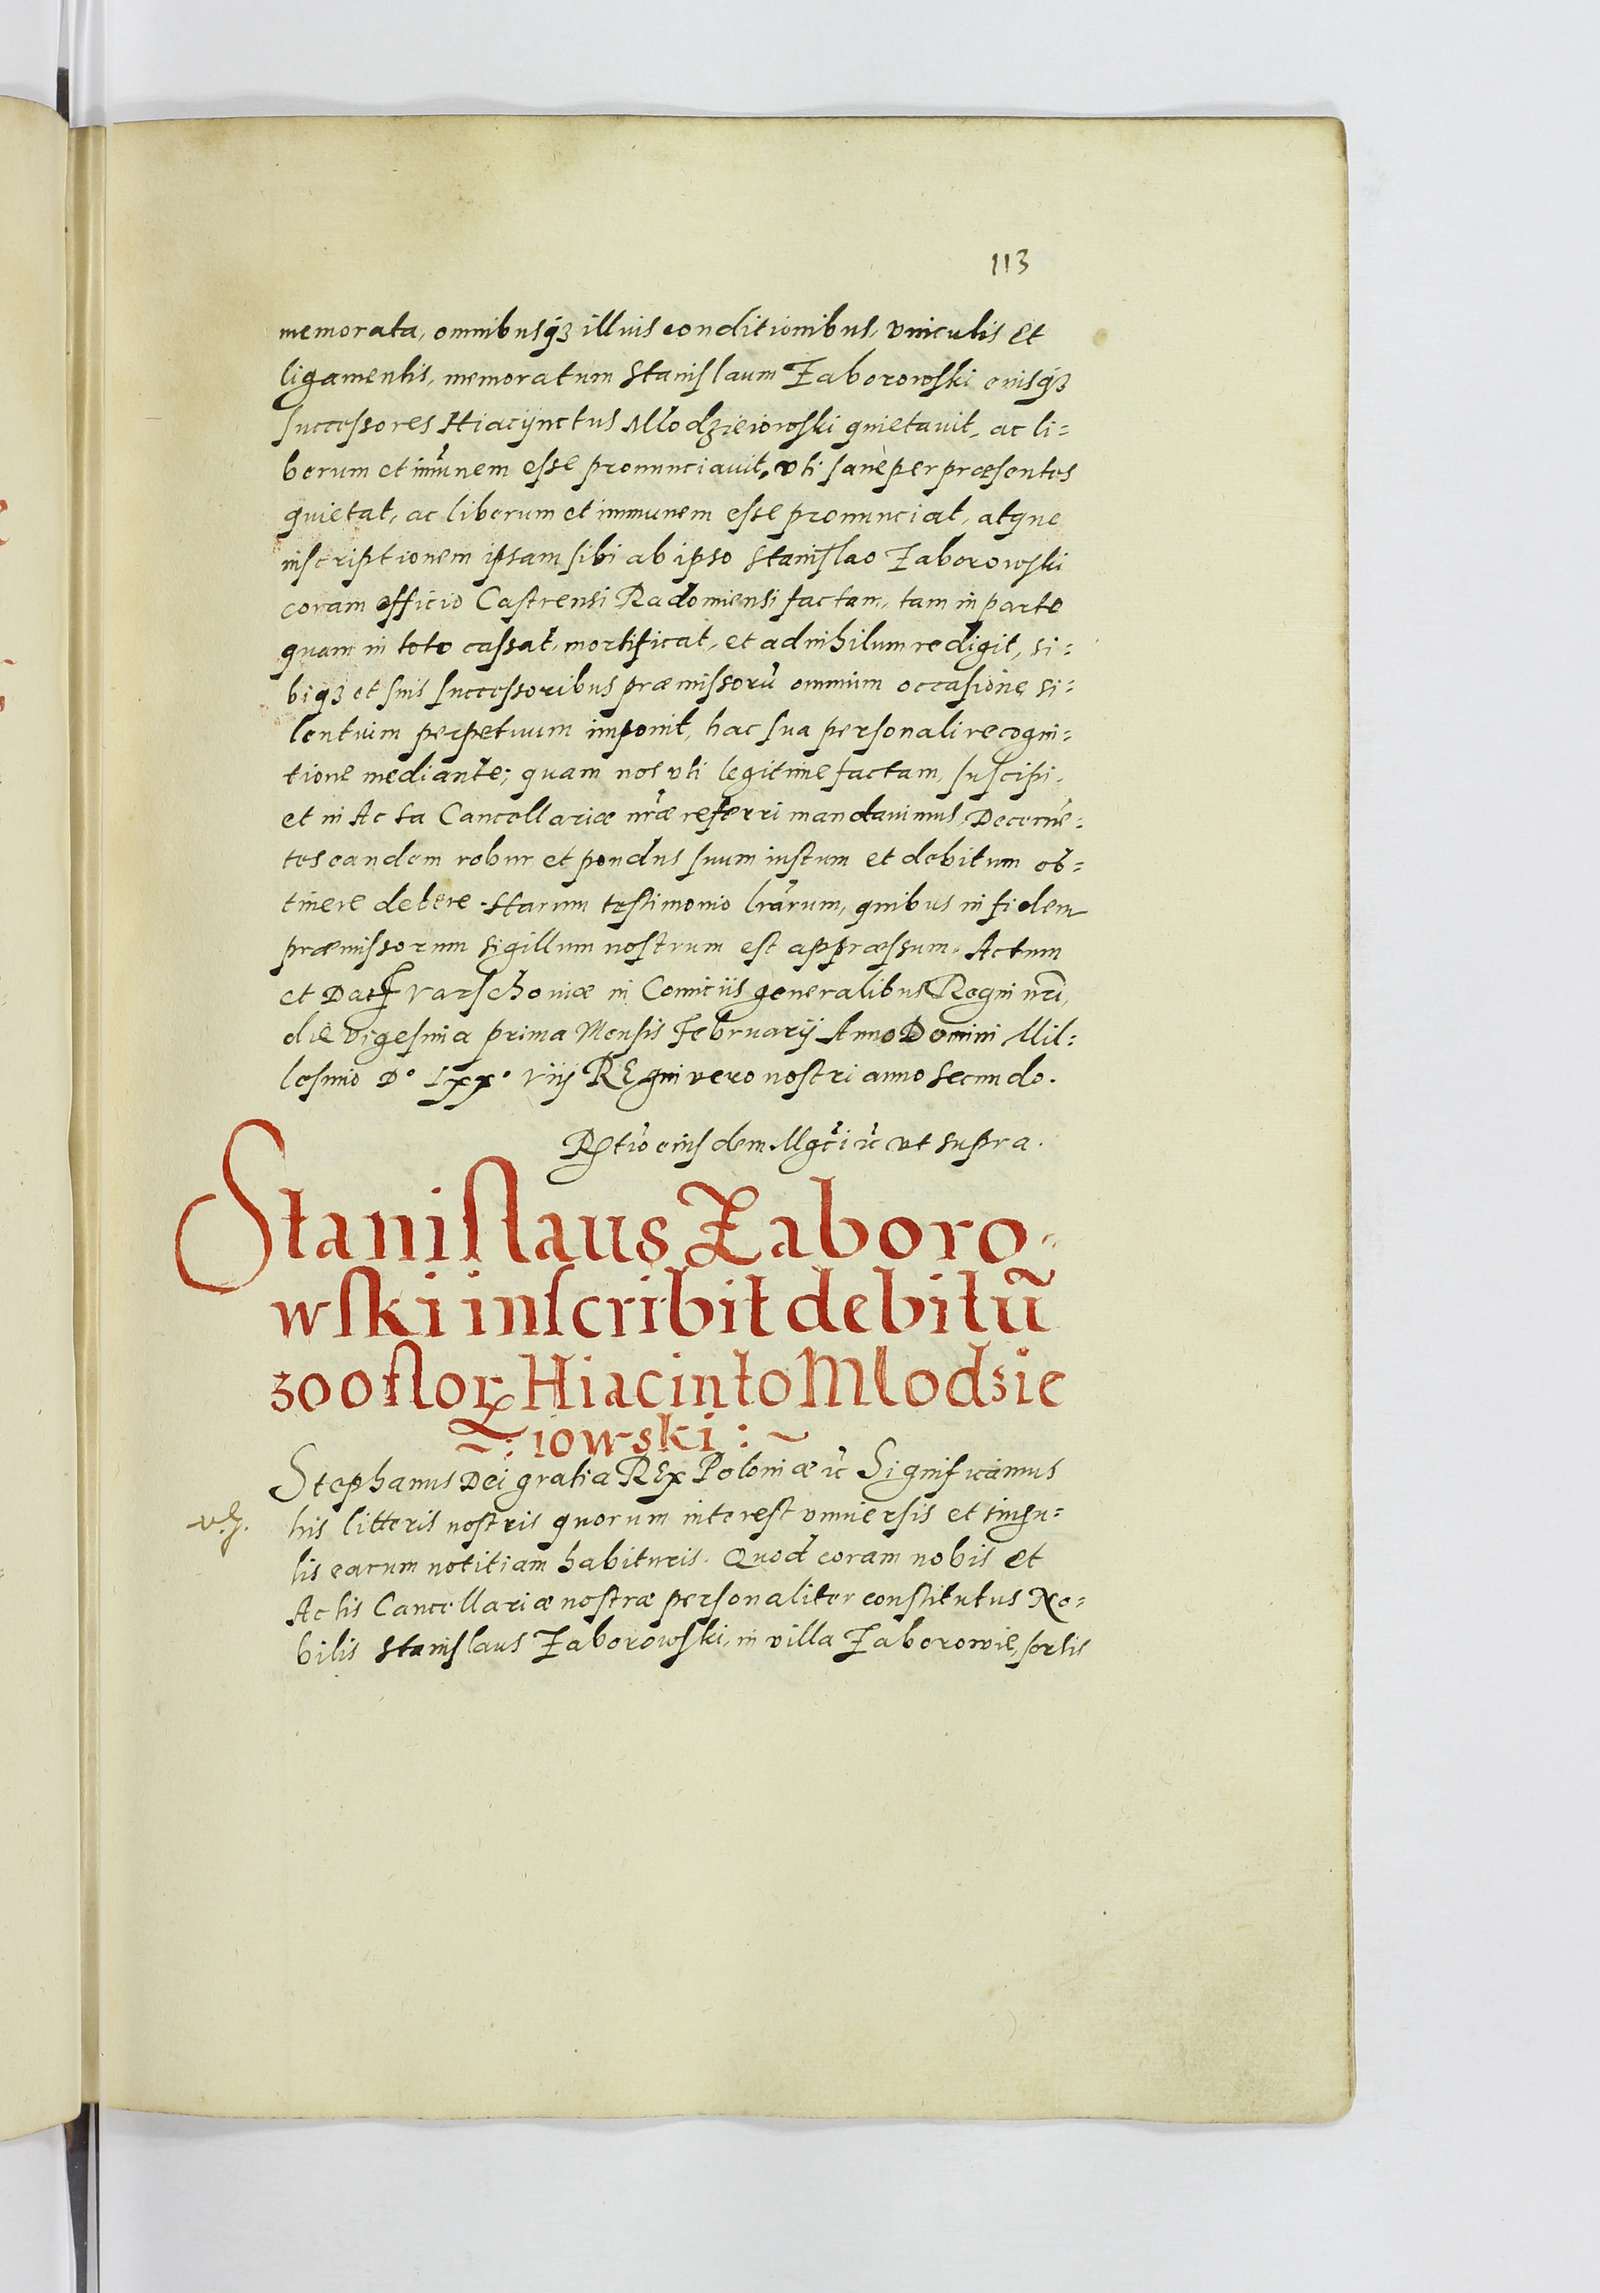 113
memorata, omnibusq₃ illius conditionibus, vinculis et
ligamentis, memoratum Stanislaum Zaborowski eiusq₃
successores Hiacijnctus Mlodzieiowski quietauit, ac li=
berum et imūnem esse pronunciauit, vti sanè per præsentes
quietat, ac liberum et immunem esse pronunciat, atque
inscriptionem ipsam sibi ab ipso Stanislao Zaborowski
coram officio Castrensi Radomiensi factam, tam in parte
quam in toto cassat, mortificat, et ad nihilum redigit, si=
biq₃ et suis successoribus præmissorū omnium occasione si=
lentium perpetuum imponit, hac sua personali recogni=
tione mediante; quam nos vti legitime factam, suscipi,
et in Acta Cancellariæ nr̄æ referri mandauimus, Decernē=
tes eandem robur et pondus suum iustum et debitum ob=
tinere debere. Harum testimonio lr̄arum, quibus in fidem
præmissorum sigillum nostrum est appræssum. Actum
et Dat Varschouiæ in Comitiis generalibus Regni nr̄i,
die Vigesima prima Mensis Februarij Anno Domini Mil=
lesimo D° Lxx° viij REgni vero nostri anno secundo.
Rtio eiusdem Mgci rc vt supra.
Stanislaus Zaboro=
wski inscribit debitū
300 flor Hiacinto Mlodzie
~: iowski :~
Stephanus Dei gratia REx Poloniæ rc Significamus
his litteris nostris quorum interest vniuersis et singu=
lis earum notitiam habituris. Quod coram nobis et
Actis Cancellariæ nostræ personaliter constitutus No=
bilis Stanislaus Zaborowski, in villa Zaborowie, sortis